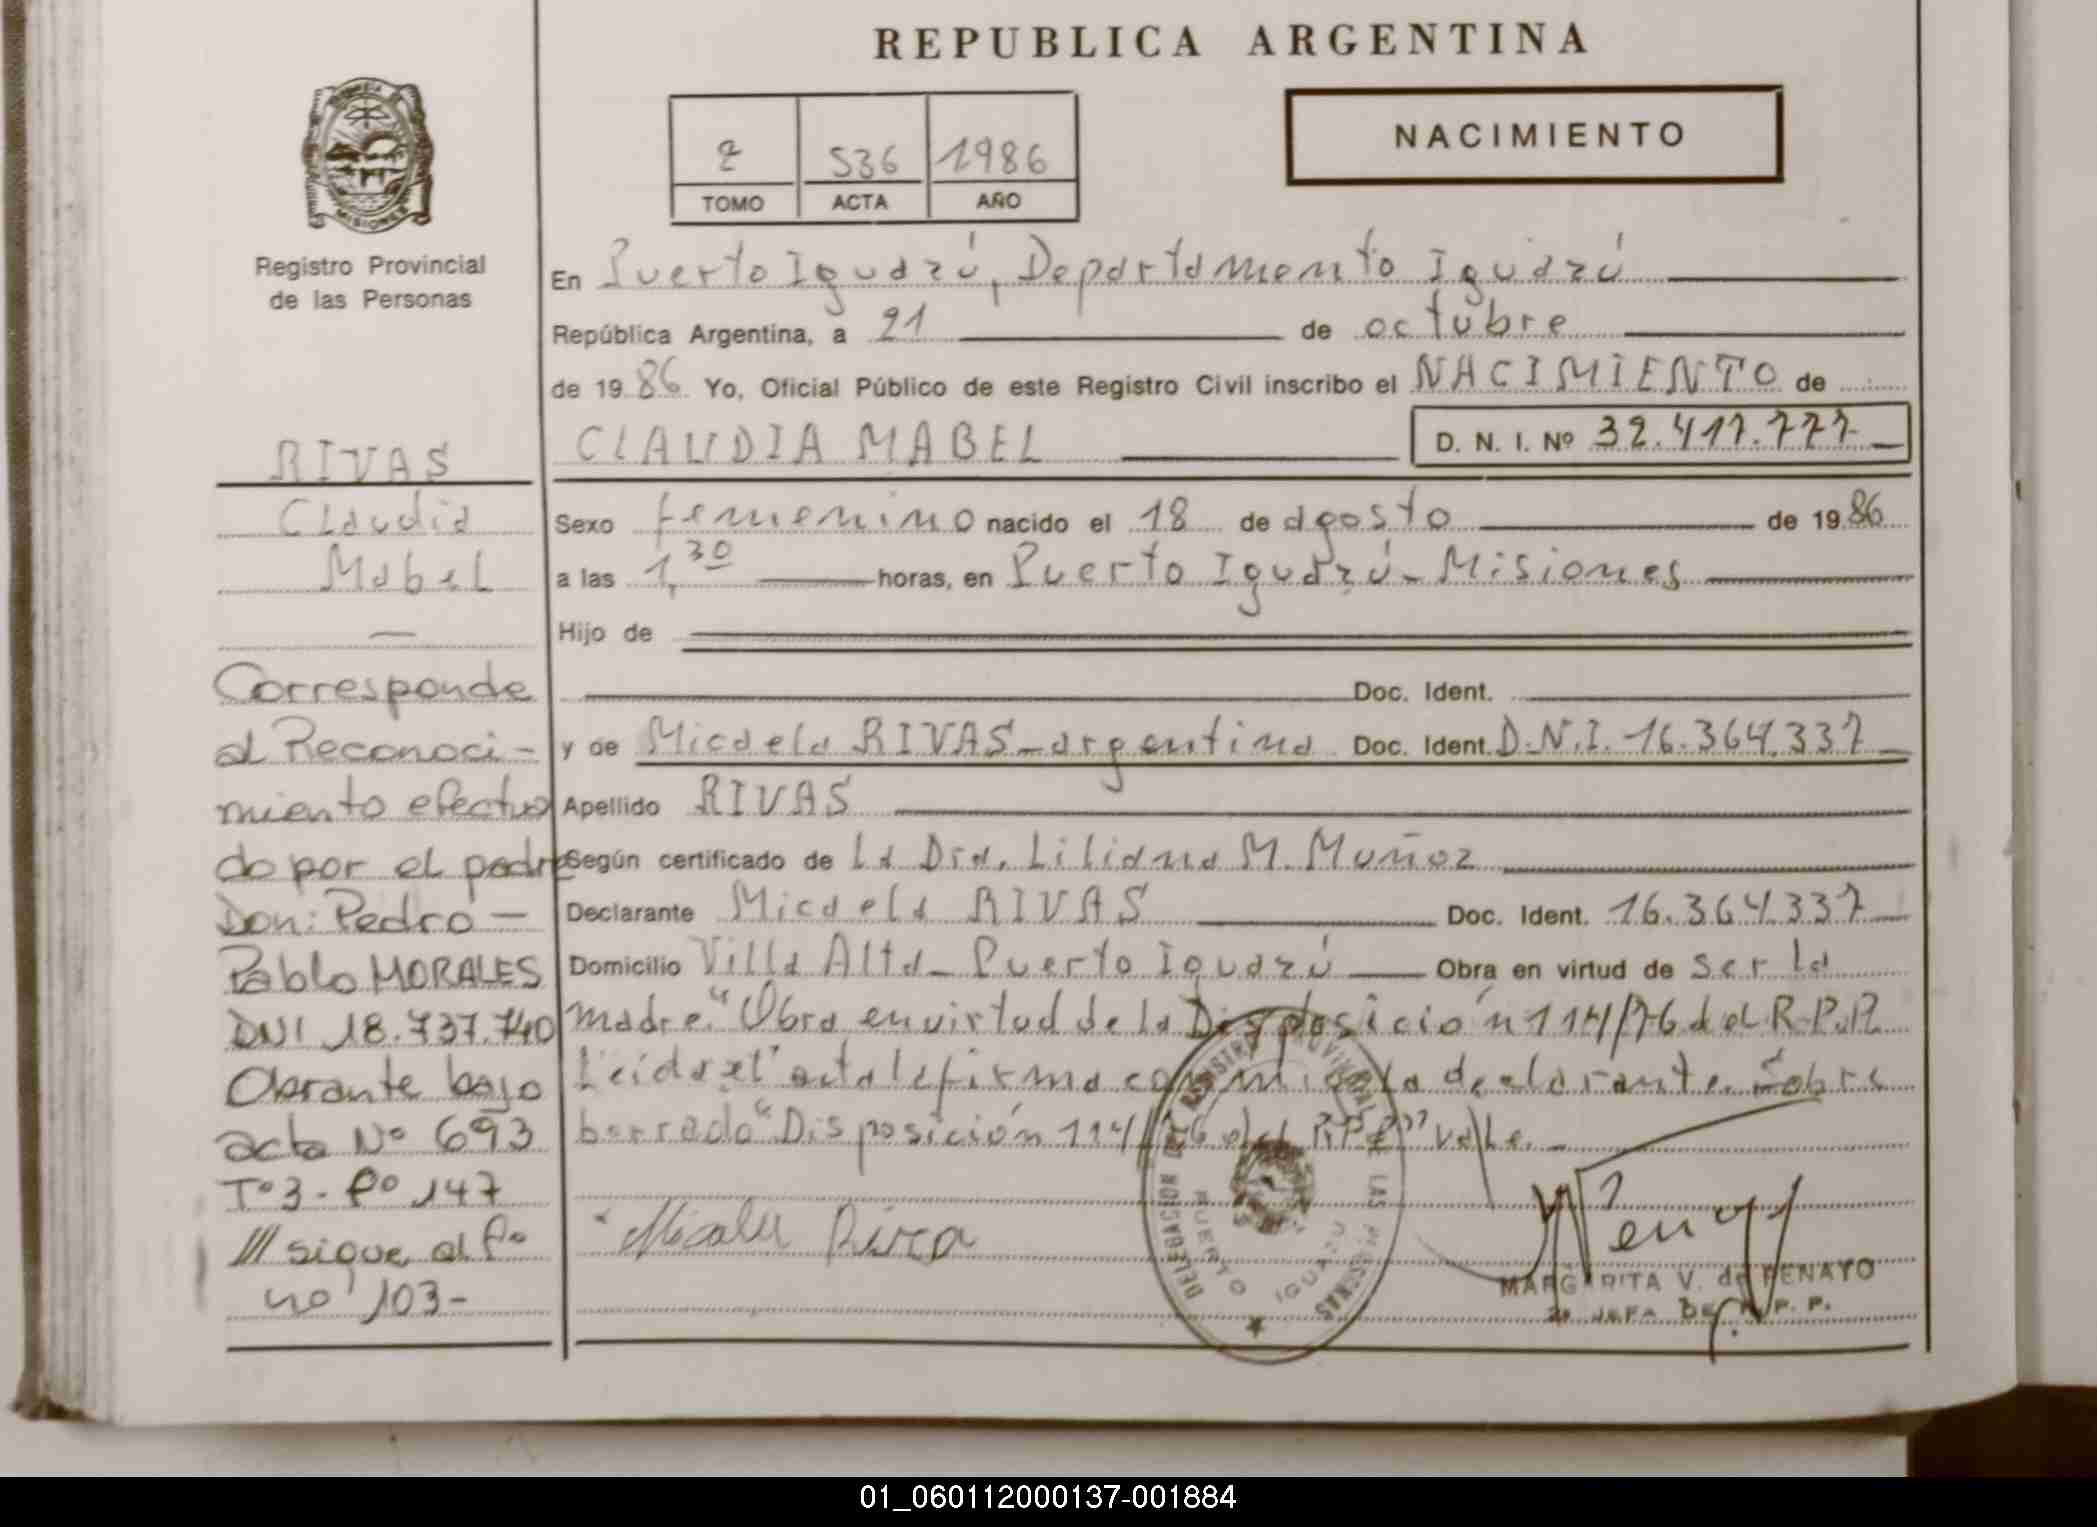 REPUBLICA ARGENTINA
NACIMIENTO
2 536 1986
TOMO ACTA AÑO
MISIONES
Registro Provincial
de las Personas
En Puerto Iguazú, Departamento Iguazú
República Argentina, a 21 de octubre
de 1986 Yo, Oficial Público de este Registro Civil inscribo el NACIMIENTO de
CLAUDIA MABEL D. N. I. Nº 32.417.777
Sexo femenino nacido el 18 de agosto de 1986
a las 1,30 horas, en Puerto Iguazú - Misiones
Hijo de
Doc. Ident.
y de Micaela RIVAS - argentina Doc. Ident. D.N.I. 16.364.337
Apellido RIVAS
Según certificado de la Dra. Liliana M. Muñoz
Declarante Micaela RIVAS Doc. Ident. 16.364.337
Domicilio Villa Alta - Puerto Iguazú Obra en virtud de ser la
madre. "Obra en virtud de la Disposición 114/76 del R.P.P.
Leida el acta la firma conmigo la declarante. Sobre
borrado "Disposición 114/76 del R.P.P." vale. -
RIVAS
Claudia
Mabel
Corresponde
al Reconoci-
miento efectua
do por el padre
Don: Pedro -
Pablo MORALES
DNI 18.737.740
Obrante bajo
acta Nº 693
Tº 3 - fº 147
/// sigue al fº
nº 103 -
DELEGACION DEL REGISTRO PROVINCIAL DE LAS PERSONAS
PUERTO IGUAZU
MARGARITA V. de PENAYO
2º JEFA DE R. P. P.
01_060112000137-001884